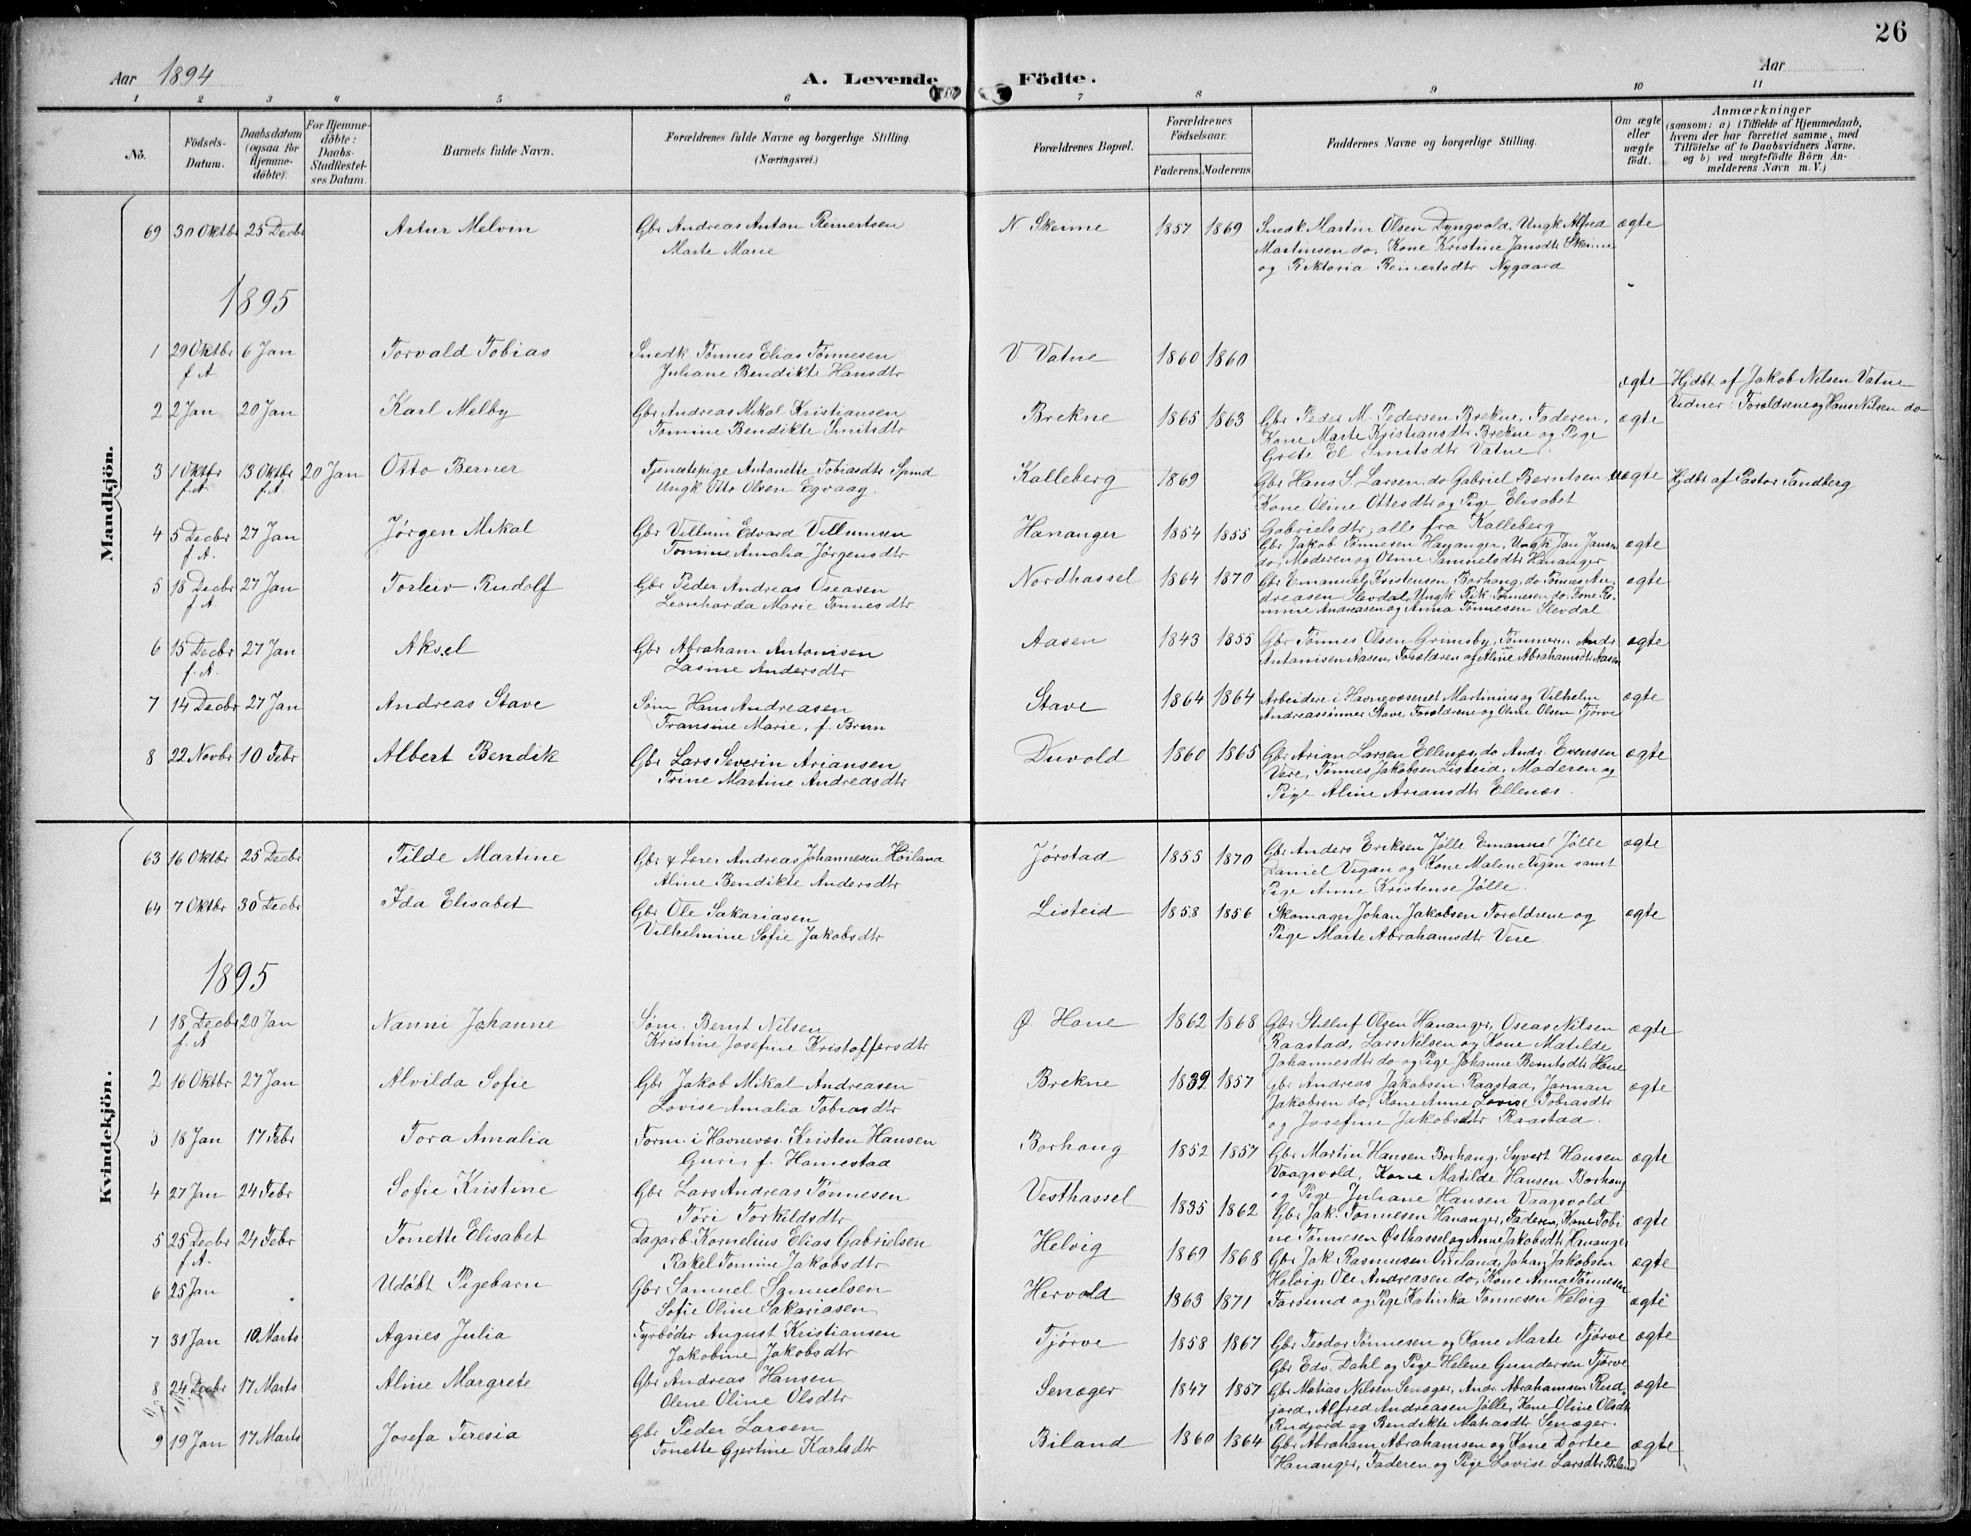 26
Aar 1894 A. Levende Födte. Aar
1 2 3 4 5 6 7 8 9 10 11
No. Födsels-Datum. Daabsdatum (ogsaa for Hjemmedöbte). For Hjemmedöbte: Daabs-Stadfæstelses Datum. Barnets fulde Navn. Forældrenes fulde Navne og borgerlige Stilling. (Næringsvei.) Forældrenes Bopæl. Forældrenes Födselsaar. Faderens. Moderens. Faddernes Navne og borgerlige Stilling. Om ægte eller uægte födt. Anmærkninger (saasom: a) i Tilfælde af Hjemmedaab, hvem der har forrettet samme, med Tilföielse af to Daabsvidners Navne. og b) ved uægtefödte Börn Anmelderens Navn m. V.)
Mandkjön.
69 30 Oktbr 25 Decbr Artur Melvin Gbr Andreas Anton Reinertsen N. Skeime 1857 1869 Snedk Martin Olsen Dyngvold, Ungk Alfred ægte
Marte Marie Martinsen do, Kone Kristine Jansdtr Skeime
og Viktoria Reinertsdtr Nygaard
1895
1 29 Oktbr 6 Jan Torvald Tobias Snedk. Tønnes Elias Tønnesen V. Vatne 1860 1860
f.A. Juliane Bendikte Hansdtr ægte Hjdbt af Jakob Nilsen Vatne
Vidner: Foreldrene og Hans Nilsen do
2 2 Jan 20 Jan Karl Melby Gbr Andreas Mikal Kristiansen Brekne 1865 1863 Gbr Peder M. Pedersen Brekne, Faderen, ægte
Tomine Bendikte Smitsdtr Kone Marte Kristiansdtr Brekne og Pige
Grete El. Smitsdtr Vatne
3 1 Oktbr 13 Oktbr 20 Jan Otto Berner Tjenestepige Antonette Tobiasdtr Kalleberg 1869 Gbr Hans S. Larsen, do Gabriel Berntsen uægte Hjdbt af Pastor Tandberg
f.A. f.A. Ungk Otto Olsen Egvaag. Kone Oline Ottesdtr og Pige Elisabet
Gabrielsdtr, alle fra Kalleberg
4 5 Decbr 27 Jan Jørgen Mikal Gbr Villum Edvard Villumsen Hananger 1854 1855 Gbr Jakob Tønnesen Hananger, Ungk Jan Jansen ægte
f.A. Tomine Amalia Jørgensdtr do, Moderen og Oline Samuelsdtr Hananger
5 18 Decbr 27 Jan Torleiv Rudolf Gbr Peder Andreas Osearen Nordhassel 1864 1870 Gbr Emanuel Kristensen Borhaug, do Tønnes An- ægte
f.A. Leonharda Marie Tønnesdtr dreasen Slevdal, Ungk Rik. Tønnesen do, Kone To-
mine Andreasen og Anna Tønnesen Slevdal
6 15 Decbr 27 Jan Aksel Gbr Abraham Antonisen Aasen 1843 1855 Gbr Tønnes Olsen Grimsby, Tømmerm Andr. ægte
f.A. Lasine Andersdtr Antonisen Aasen, Forældren og Aline Abrahamsdtr Aasen
7 14 Decbr 27 Jan Andreas Stave Søm. Hans Andreasen Stave 1864 1864 Arbeidere i Havnevæsenet Martinius og Vilhelm ægte
Fransine Marie, f. Brun Andreassønner Stave Foreldrene og Oline Olsen Tjørve
8 22 Novbr 10 Febr Albert Bendik Gbr Lars Severin Ariansen Duvold 1860 1865 Gbr Arian Larsen Ellenes, do Andr. Evensen ægte
Trine Martine Andreasdtr Vere, Tønnes Jakobsen Listeid, Moderen og
Pige Aline Ariansdtr Ellenes.
Kvindekjön.
63 16 Oktbr 25 Decbr Tilde Martine Gbr & Lærer Andreas Johannesen Høiland Jørstad 1855 1870 Gbr Anders Eriksen Jølle Emanuel Jølle ægte
Aline Bendikte Andersdtr Daniel Vigan og Kone Malene Vigan samt
Pige Anne Kristense Jølle.
64 7 Oktbr 30 Decbr Ida Elisabet Gbr Ole Sakariasen Listeid 1858 1856 Skomager Johan Jakobsen Foreldrene og ægte
Vilhelmine Sofie Jakobsdtr Pige Marte Abrahamsdtr Vere
1895
1 18 Decbr 20 Jan Nanni Johanne Søm. Bernt Nilsen Ø Hane 1862 1868 Gbr Stilluf Olsen Hananger, Oseas Nilsen ægte
f.A. Kristine Josefine Kristoffersdtr Raastad, Lars Nilsen og Kone Matilde
Johannesdtr do og Pige Johanne Berntsdtr Hane
2 16 Oktbr 27 Jan Alvilda Sofie Gbr Jakob Mikal Andreasen Brekne 1839 1857 Gbr Andreas Jakobsen Raastad, Jarman ægte
Lovise Amalia Tobiasdtr Jakobsen do, Kone Anne Lovise Tobiasdtr
og Josefine Jakobsdtr Raastad.
3 18 Jan 17 Febr Tora Amalia Form. i Havnevæs. Kristen Hansen Borhaug 1852 1857 Gbr Martin Hansen Borhaug, Syvert Hansen ægte
Guri, f. Hamestad Vaagsvold, Kone Matilde Hansen Borhaug
og Pige Juliane Hansen Vaagsvold
4 27 Jan 24 Febr Sofie Kristine Gbr Lars Andreas Tønnesen Vesthassel 1835 1862 Gbr Jak. Tønnesen Hananger, Faderen, Kone Tobi ægte
Tøri Torkildsdtr ne Tønnesen Østhassel og Anne Jakobsdtr Hananger
5 25 Decbr 24 Febr Tonette Elisabet Dagarb. Kornelius Elias Gabrielsen Helvig 1869 1868 Gbr Jak Rasmussen Omland, Johan Jakobsen ægte
f.A. Rakel Tomine Jakobsdtr Helvig, Ole Andreasen do, Kone Anna Tønnesen
6 25 Jan Udøbt Pigebarn Gbr Samuel Samuelsen Hervold 1863 1871 Farsund og Pige Katinka Tønnesen Helvig ægte
Sofie Oline Sakariasen
7 31 Jan 10 Marts Agnes Julia Fyrbøder August Kristiansen Tjørve 1858 1867 Gbr Teodor Tønnesen og Kone Marte Tjørve ægte
Jakobine Jakobsdtr Gbr Edv. Dahl og Pige Helene Gundersen Tjørve
8 24 Decbr 17 Marts Aline Margrete Gbr Andreas Hansen Senæger 1847 1857 Gbr Matias Nilsen Senæger, Andr. Abrahamsen Rud- ægte
Olene Oline Olsdtr jord, Alfred Andreasen Jølle, Kone Oline Olsdtr
Rudjord og Bendikte Matiasdtr Senæger.
9 19 Jan 17 Marts Josefa Teresia Gbr Peder Larsen Biland 1860 1864 Gbr Abraham Abrahamsen og Kone Dortee ægte
Tonette Gjertine Karlsdtr Hananger, Faderen og Pige Lovise Larsdtr Biland